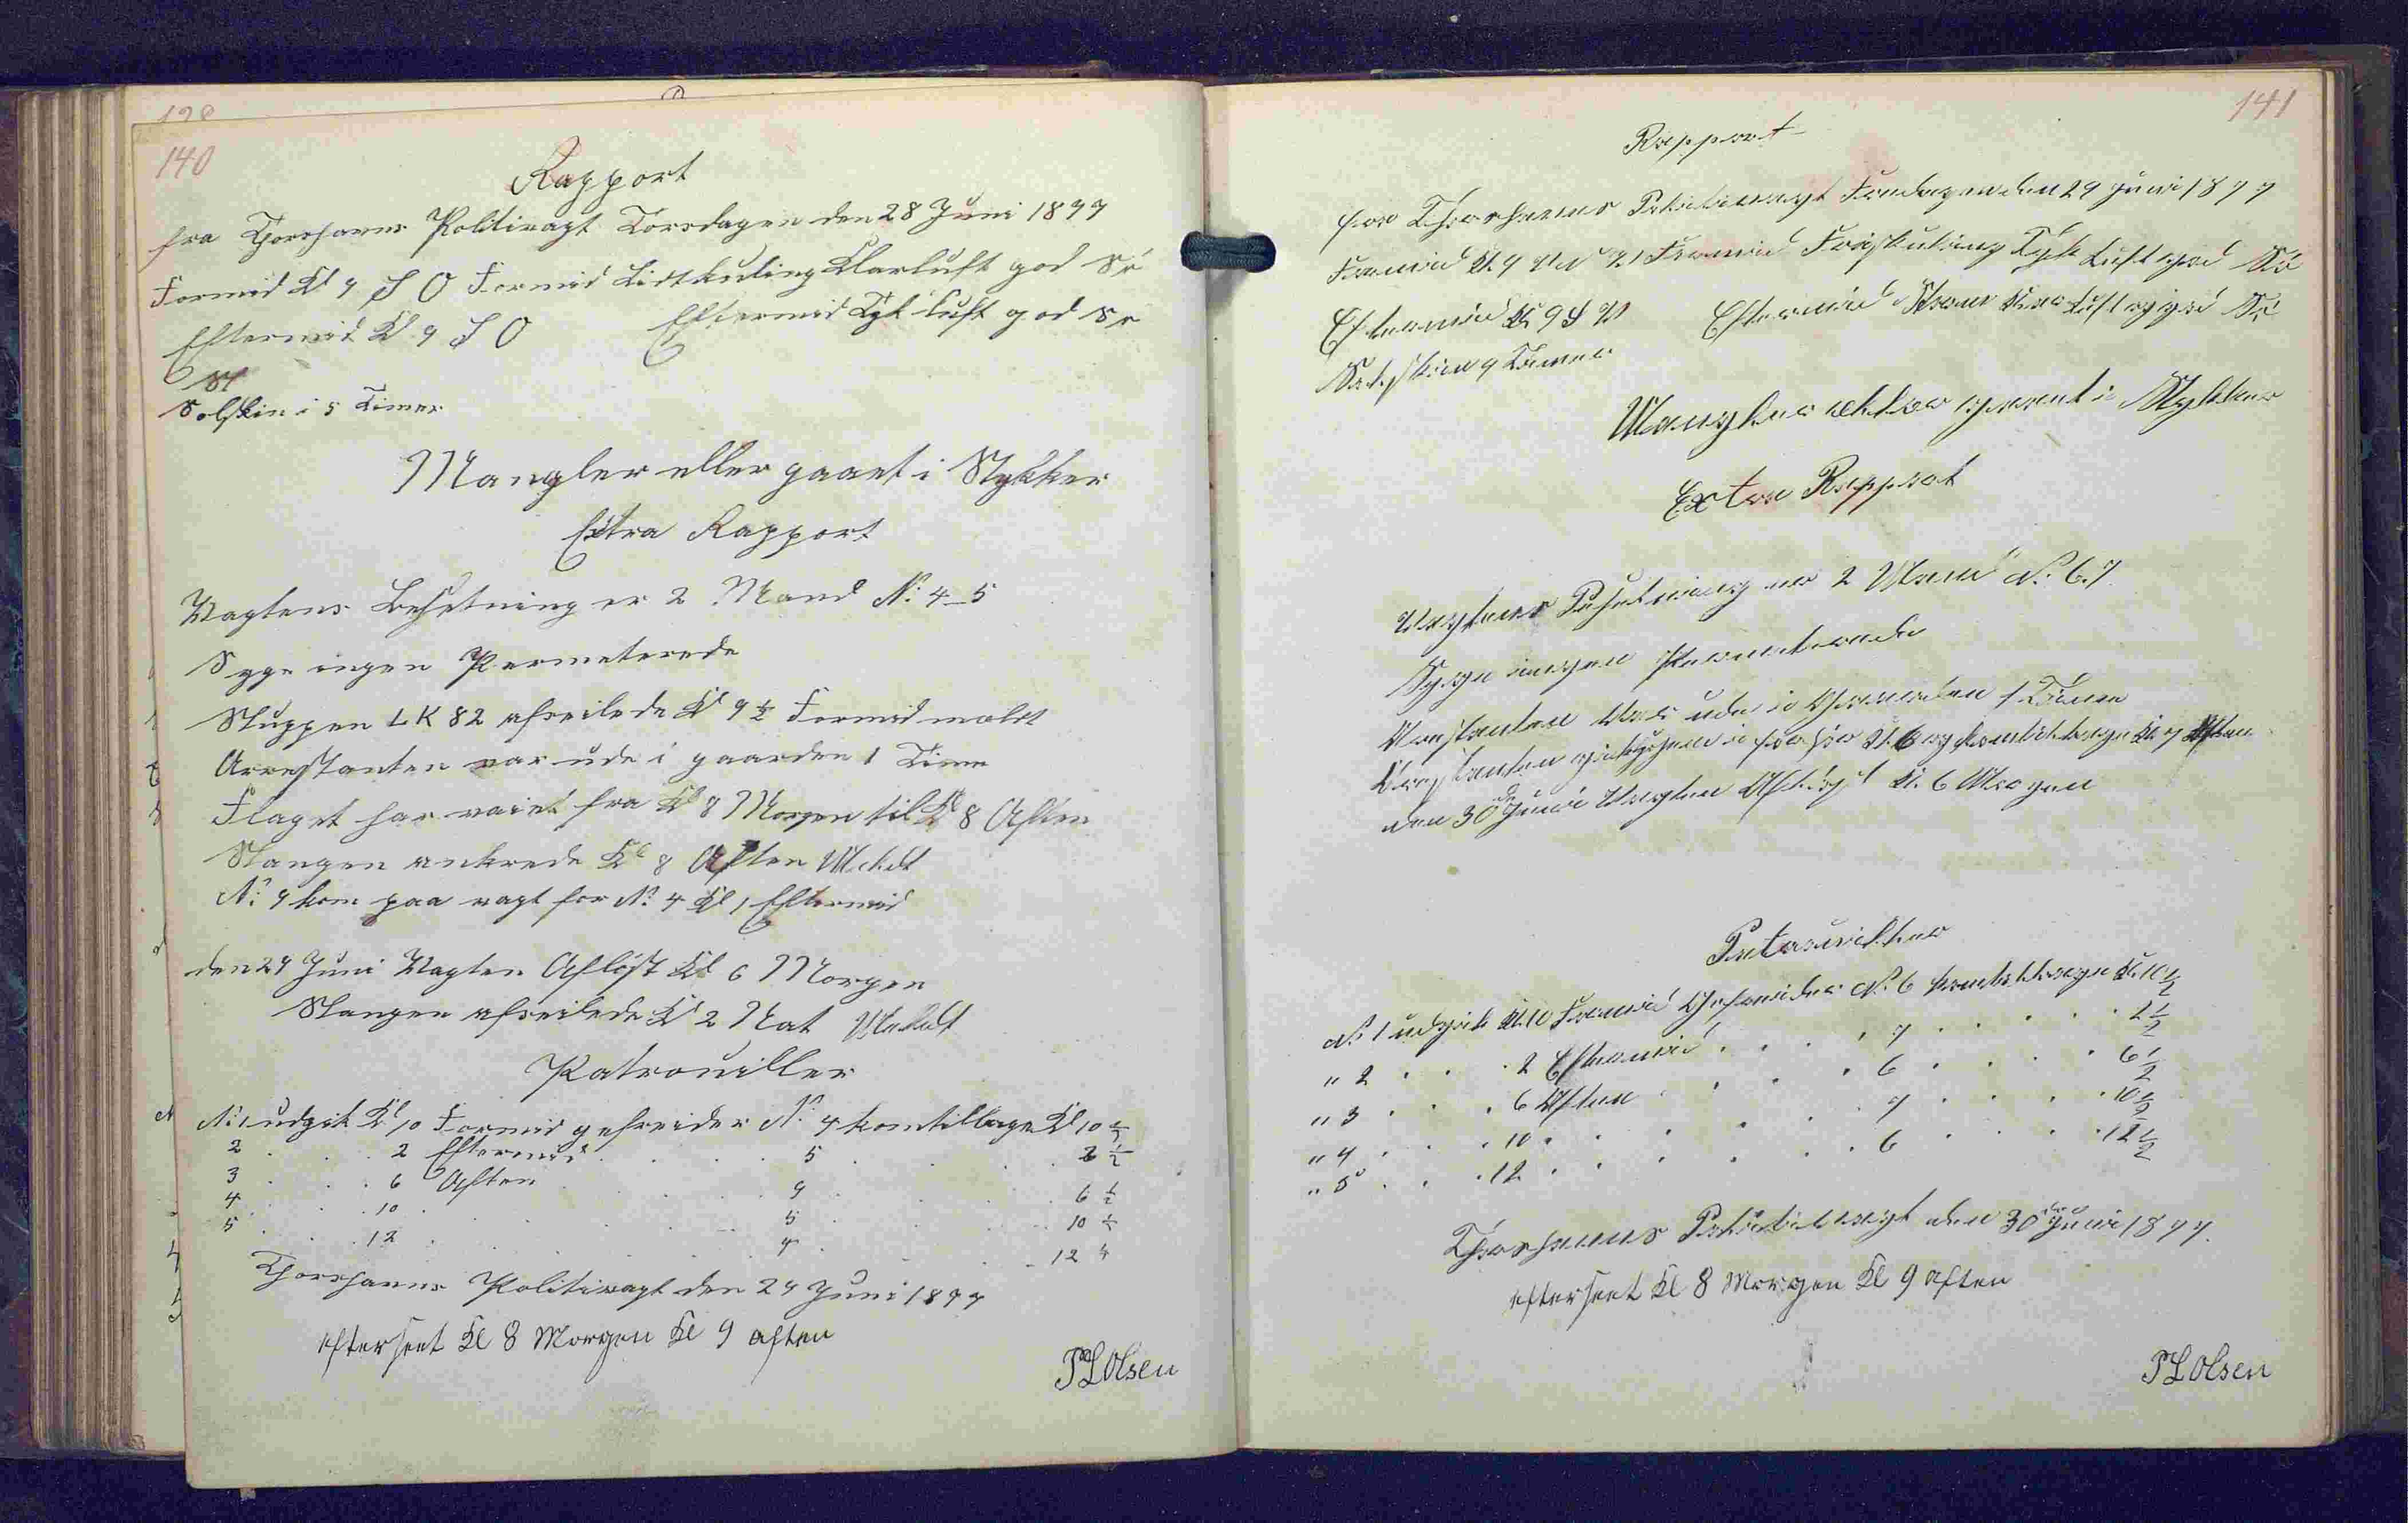 140
Rapport
fra Thorshavns Politivagt Torsdagen den 28 Juni 1877
Formid Kl 9 S O Formid Lidtkuling Klarluft god Sö
Eftermid Kl. 9 S O Eftermid Tyk luft god Sö
Sl
Solskin i 5 Timer
Mangler eller gaaet i Stykker
Extra Rapport
Vagtens Besetning er 2 Mand No 4-5
Syge ingen Permeterede
Sluppen LK 82 afseilede Kl 9½ Formid meldt
Arrestanten var ude i gaarden 1 Time
Flaget har vaiet fra Kl 8 Morgen til Kl 8 Aften
Slangen ankrede Kl 8 Aften Meldt
No 7 kom paa vagt for No 4 Kl 1 Eftermid
den 29 Juni Vagten Aflöst Kl 6 Morgen
Slangen afseilede Kl 2 Nat Meldt
Patrouiller
No 1 udgik Kl 10 Formid gefreider No 4 kom tilbage Kl 10½
2 . . 2 Eftermid . . 5 . . 2½
3 . . 6 Aften . . 4 . . 6½
4 . . 10 . . 5 . . 10½
5 . . 12 . . 4 . . 12½
Thorshavns Politivagt den 29 Juni 1877
efterseet Kl 8 Morgen Kl 9 aften
PLOlsen
141
Rapport
fra Thorshavns Politivagt Fredagen den 29 Juni 1877
Formid Kl. 9 V N V Formid Friskkuling Tyk Luft god Sö
Eftermid Kl 9 S V Eftermid Klar Luft og god Sö
Solskin 9 Timer
Mangler eller gaaet i Stykker
Extra Rapport
Vagtens Besetning er 2 Mand No. 6.7
Syge ingen Permeterede
Arrestanten Var ude i Gaarden 1 Time
Arrestanten gik Kl. 6 og kom tilbage Kl 7 Aften
den 30de Juni Vagten Aflöst Kl. 6 Morgen
Patrouiller
No. 1 udgik Kl. 10 Formid Gefreider No. 6 kom tilbage Kl. 10½
" 2 . . . 2 Eftermid . . . . 7 . . . . . 2½
" 3 . . . 6 Aften . . . . 6 . . . . 6½
" 4 . . . 10 . . . . 7 . . . . 10½
" 5 . . . 12 . . . . 6 . . . . 12½
Thorshavns Politivagt den 30den Juni 1877.
efterseet Kl 8 Morgen Kl 9 aften
PLOlsen